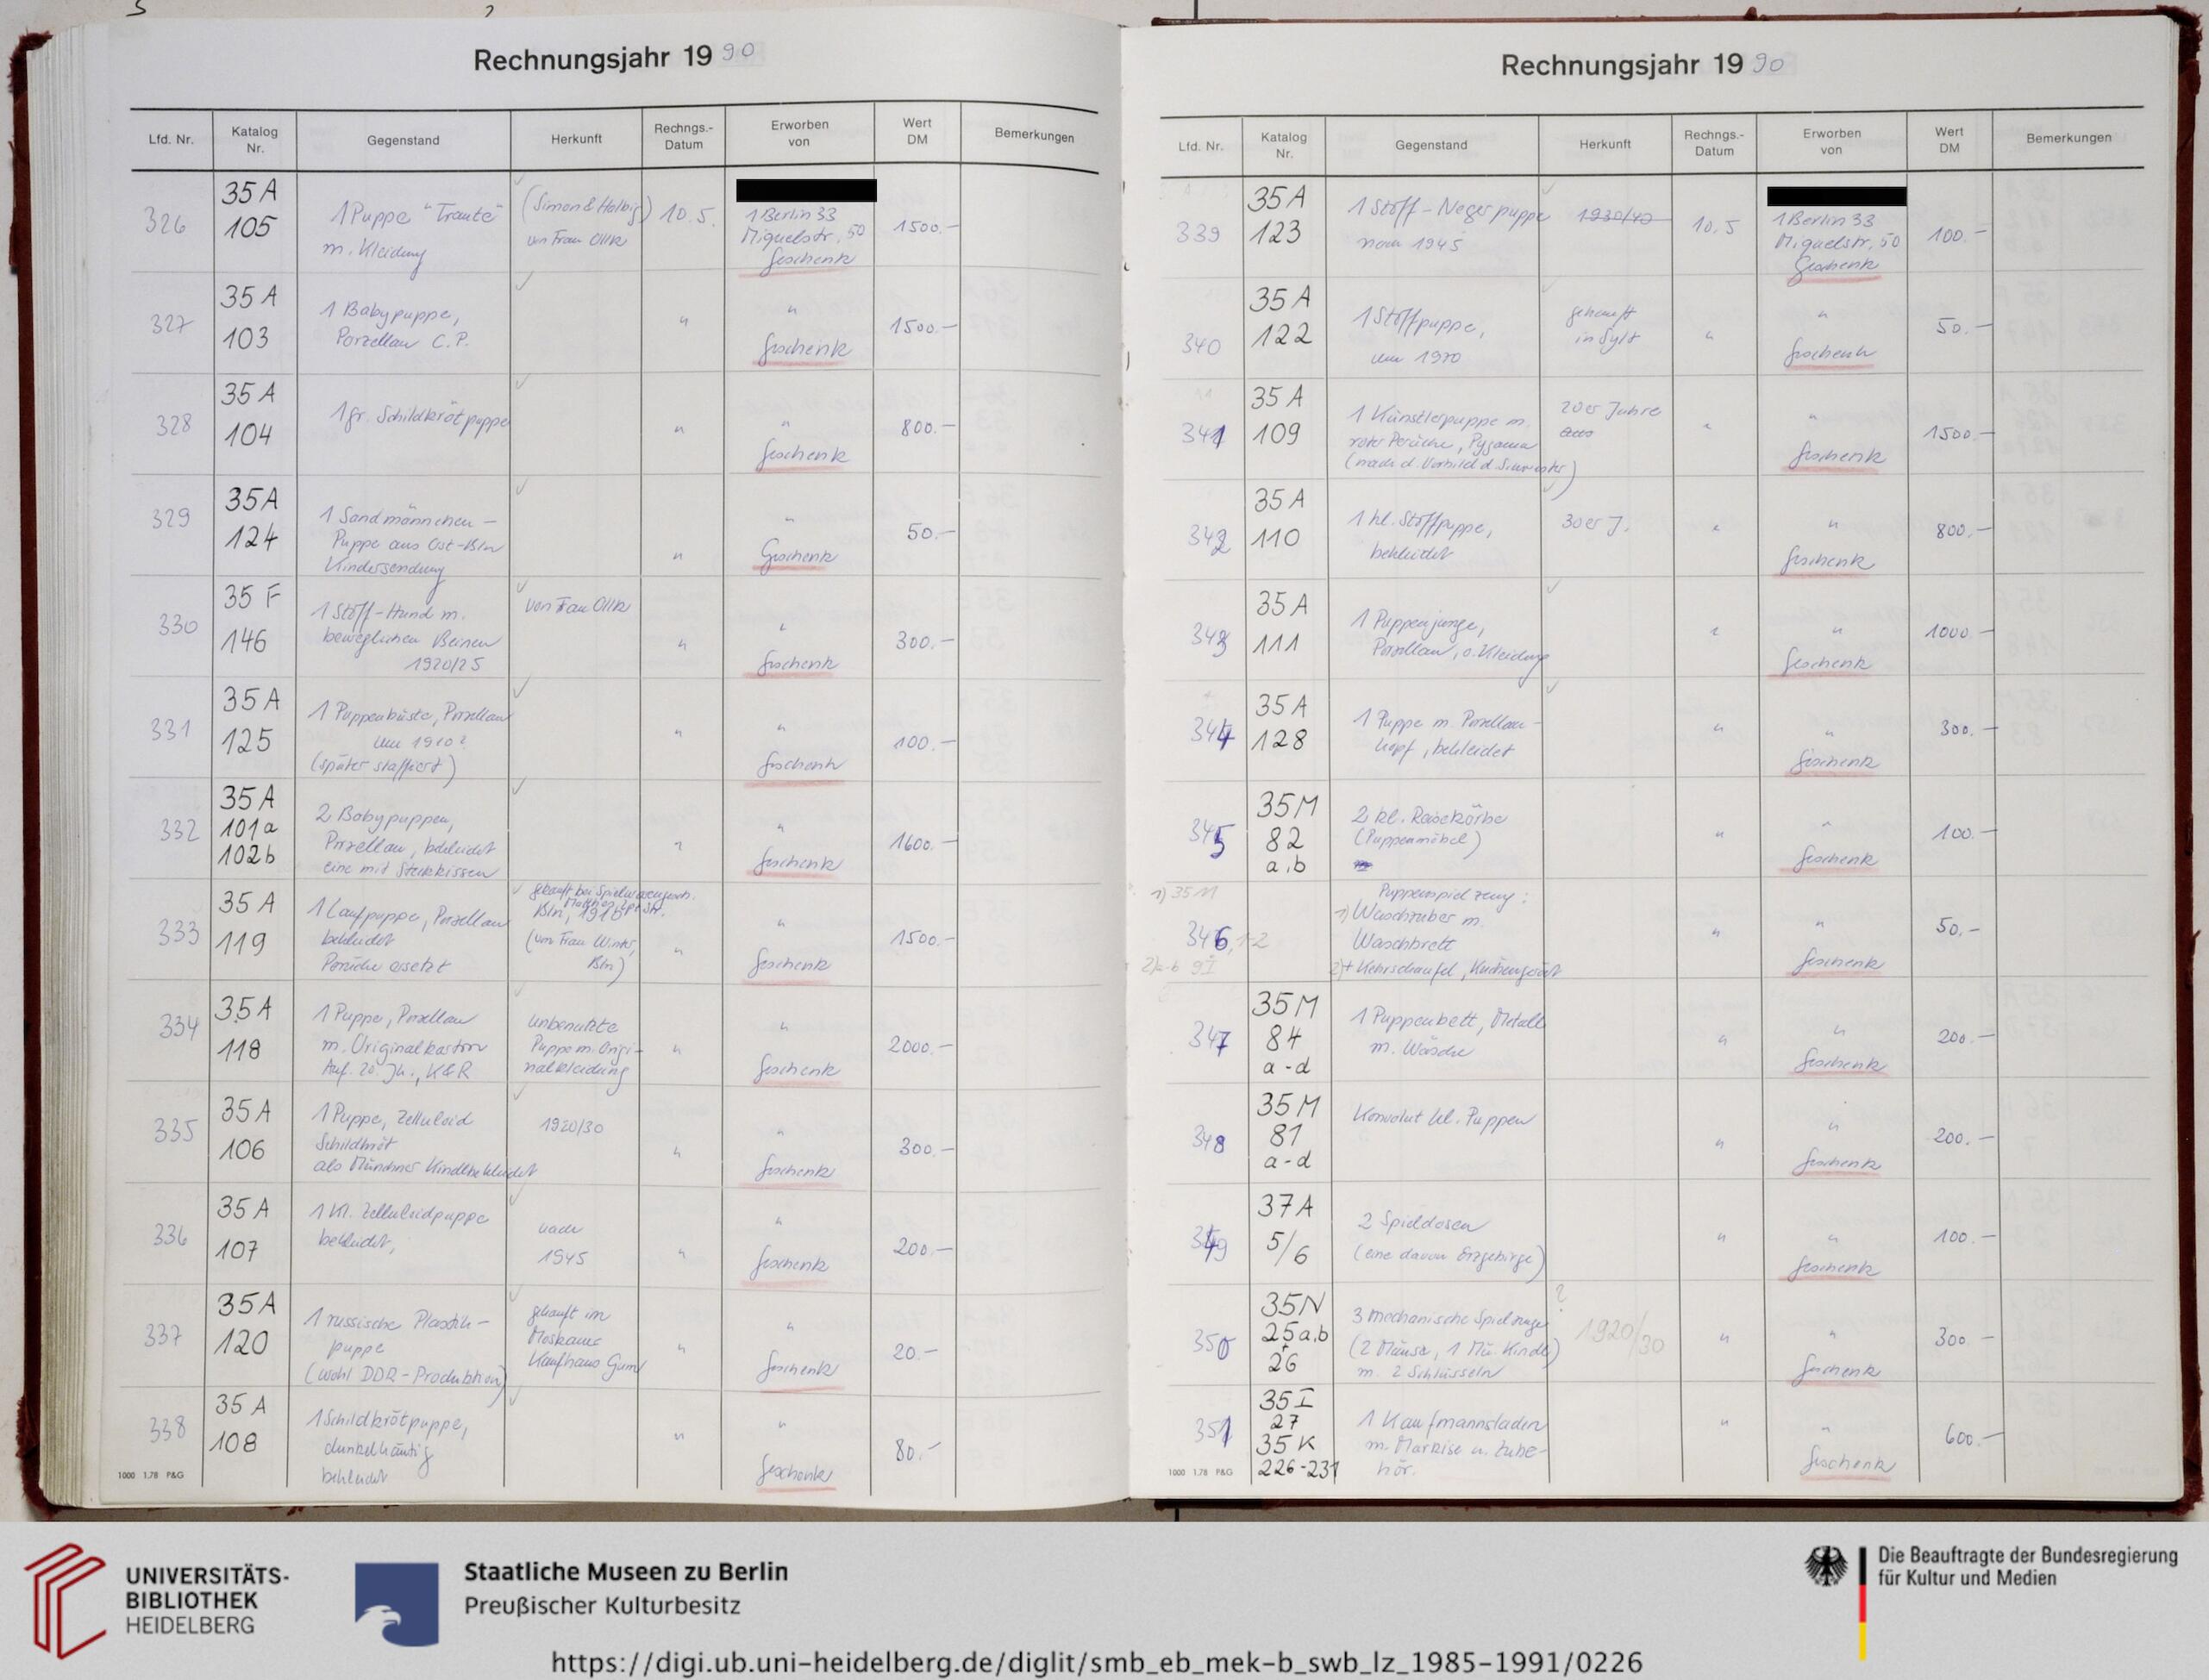 Rechnungsjahr 1990
Lfd. Nr.
Katalog
Nr.
Gegenstand
Herkunft
Rechngs.-
Datum
Erworben
von
Wert
DM
Bemerkungen
326
35 A
105
1 Puppe "Traute"
m. Kleidung
(Simon & Halbig)
von Frau Ollk
10.5.
1 Berlin 33
Miquelstr. 50
Geschenk
1500.-
327
35 A
103
1 Babypuppe,
Porzellan C.P.
"
"
Geschenk
1500.-
328
35 A
104
1 gr. Schildkrötpuppe
"
"
Geschenk
800.-
329
35 A
124
1 Sandmännchen-
Puppe aus Ost-Bln
Kindersendung
"
"
Geschenk
50.-
330
35 F
146
1 Stoff-Hund m.
beweglichen Beinen
1920/25
von Frau Ollk
"
"
Geschenk
300.-
331
35 A
125
1 Puppenbüste, Porzellan
um 1910?
(später staffiert)
"
"
Geschenk
100.-
332
35 A
101a
102b
2 Babypuppen,
Porzellan, bekleidet
eine mit Steckkissen
"
"
Geschenk
1600.-
333
35 A
119
1 Laufpuppe, Porzellan
bekleidet
Perücke ersetzt
gekauft bei Spielwarengesch.
Bln, 1915
(von Frau Winter,
Bln)
"
"
Geschenk
1500.-
334
35 A
118
1 Puppe, Porzellan
m. Originalkarton
Anf. 20. Jh., K&R
unbenutzte
Puppe m. Origi-
nalkleidung
"
"
Geschenk
2000.-
335
35 A
106
1 Puppe, Zelluloid
Schildkröt
als Münchner Kindl bekleidet
1920/30
"
"
Geschenk
300.-
336
35 A
107
1 kl. Zelluloidpuppe
bekleidet,
nach
1945
"
"
Geschenk
200.-
337
35 A
120
1 russische Plastik-
puppe
(wohl DDR-Produktion)
gekauft im
Moskauer
Kaufhaus Gum
"
"
Geschenk
20.-
338
35 A
108
1 Schildkrötpuppe,
dunkelhäutig
bekleidet
"
"
Geschenk
80.-
1000 1.78 P&G
Rechnungsjahr 1990
Lfd. Nr.
Katalog
Nr.
Gegenstand
Herkunft
Rechngs.-
Datum
Erworben
von
Wert
DM
Bemerkungen
339
35 A
123
1 Stoff-Negerpuppe
nach 1945
1930/40
10.5
1 Berlin 33
Miquelstr. 50
Geschenk
100.-
340
35 A
122
1 Stoffpuppe,
um 1970
gekauft
in Sylt
"
"
Geschenk
50.-
341
35 A
109
1 Künstlerpuppe m.
roter Perücke, Pyjama
(nach d. Vorbild d.
20er Jahre
"
"
Geschenk
1500.-
342
35 A
110
1 kl. Stoffpuppe,
bekleidet
30er J.
"
"
Geschenk
800.-
343
35 A
111
1 Puppenjunge,
Porzellan, o. Kleidung
"
"
Geschenk
1000.-
344
35 A
128
1 Puppe m. Porzellan-
kopf, bekleidet
"
"
Geschenk
300.-
345
35 M
82
a,b
2 kl. Reisekörbe
(Puppenmöbel)
"
"
Geschenk
100.-
1) 35 M
346,1-2
2) a-b 9 I
Puppenspielzeug:
1) Waschzuber m.
Waschbrett
2) + Kehrschaufel, Kuchengerät
"
"
Geschenk
50.-
347
35 M
84
a-d
1 Puppenbett, Metall
m. Wäsche
"
"
Geschenk
200.-
348
35 M
81
a-d
Konvolut kl. Puppen
"
"
Geschenk
200.-
349
37 A
5/6
2 Spieldosen
(eine davon Erzgebirge)
"
"
Geschenk
100.-
350
35 N
25 a,b
+
26
3 mechanische Spielzeuge
(2 Mäuse, 1 Mü. Kindl)
m. 2 Schlüsseln
?
1920/30
"
"
Geschenk
300.-
351
35 I
27
35 K
226-231
1 Kaufmannsladen
m. Markise u. Zube-
hör.
"
"
Geschenk
600.-
1000 1.78 P&G
UNIVERSITÄTS-
BIBLIOTHEK
HEIDELBERG
Staatliche Museen zu Berlin
Preußischer Kulturbesitz
Die Beauftragte der Bundesregierung
für Kultur und Medien
https://digi.ub.uni-heidelberg.de/diglit/smb_eb_mek-b_swb_lz_1985-1991/0226